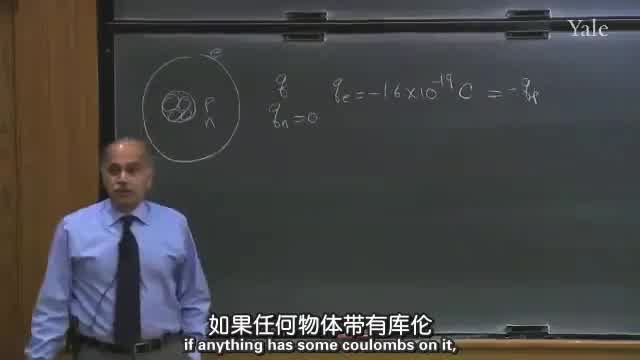 Yale
e
p
n
q
q_e = -1.6 × 10^-19 C = -q_p
q_n = 0
如果任何物体带有库伦
if anything has some coulombs on it,